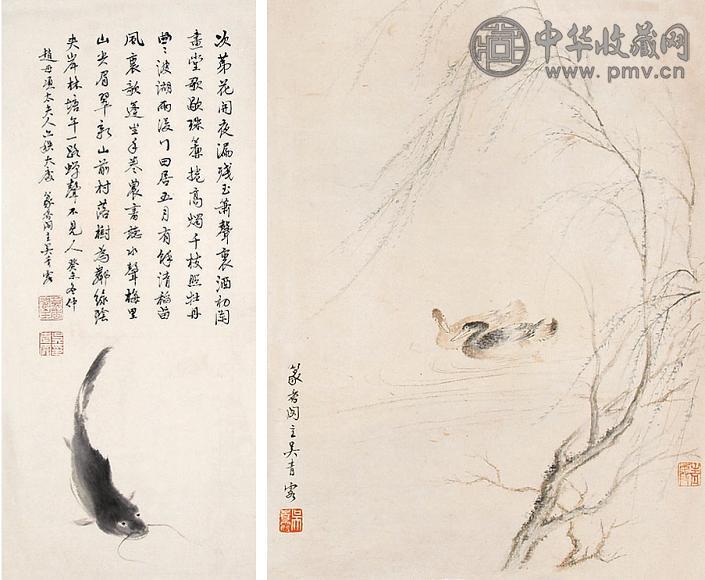 次第花開夜漏殘玉簫聲裏酒初闌
畫堂歌歇珠簾捲高燭千枝照牡丹
曲〻波湖雨後行田居五月有餘清稻苗
風裏欹蓬坐手卷農書聽水聲梅里
山尖眉翠新山前村落樹為鄰綠陰
夾岸林塘午一路蟬聲不見人 癸未冬仲
趙母太夫人六秩大慶 篆香閣主吳青霞
篆香閣主吳青霞
中华收藏网
www.pmv.cn